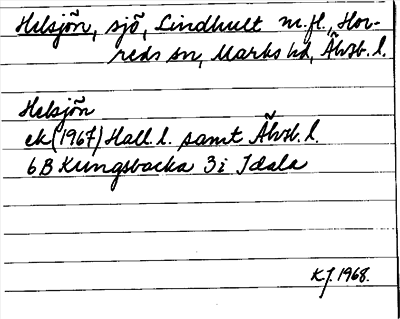 Helsjön, sjö, Lindhult m.fl., Hor-
reds sn, Marks hd, Älvsb. l.
Helsjön
ek (1967) Hall. l. samt Älvsb. l.
6B Kungsbacka 3i Idala
KJ. 1968.